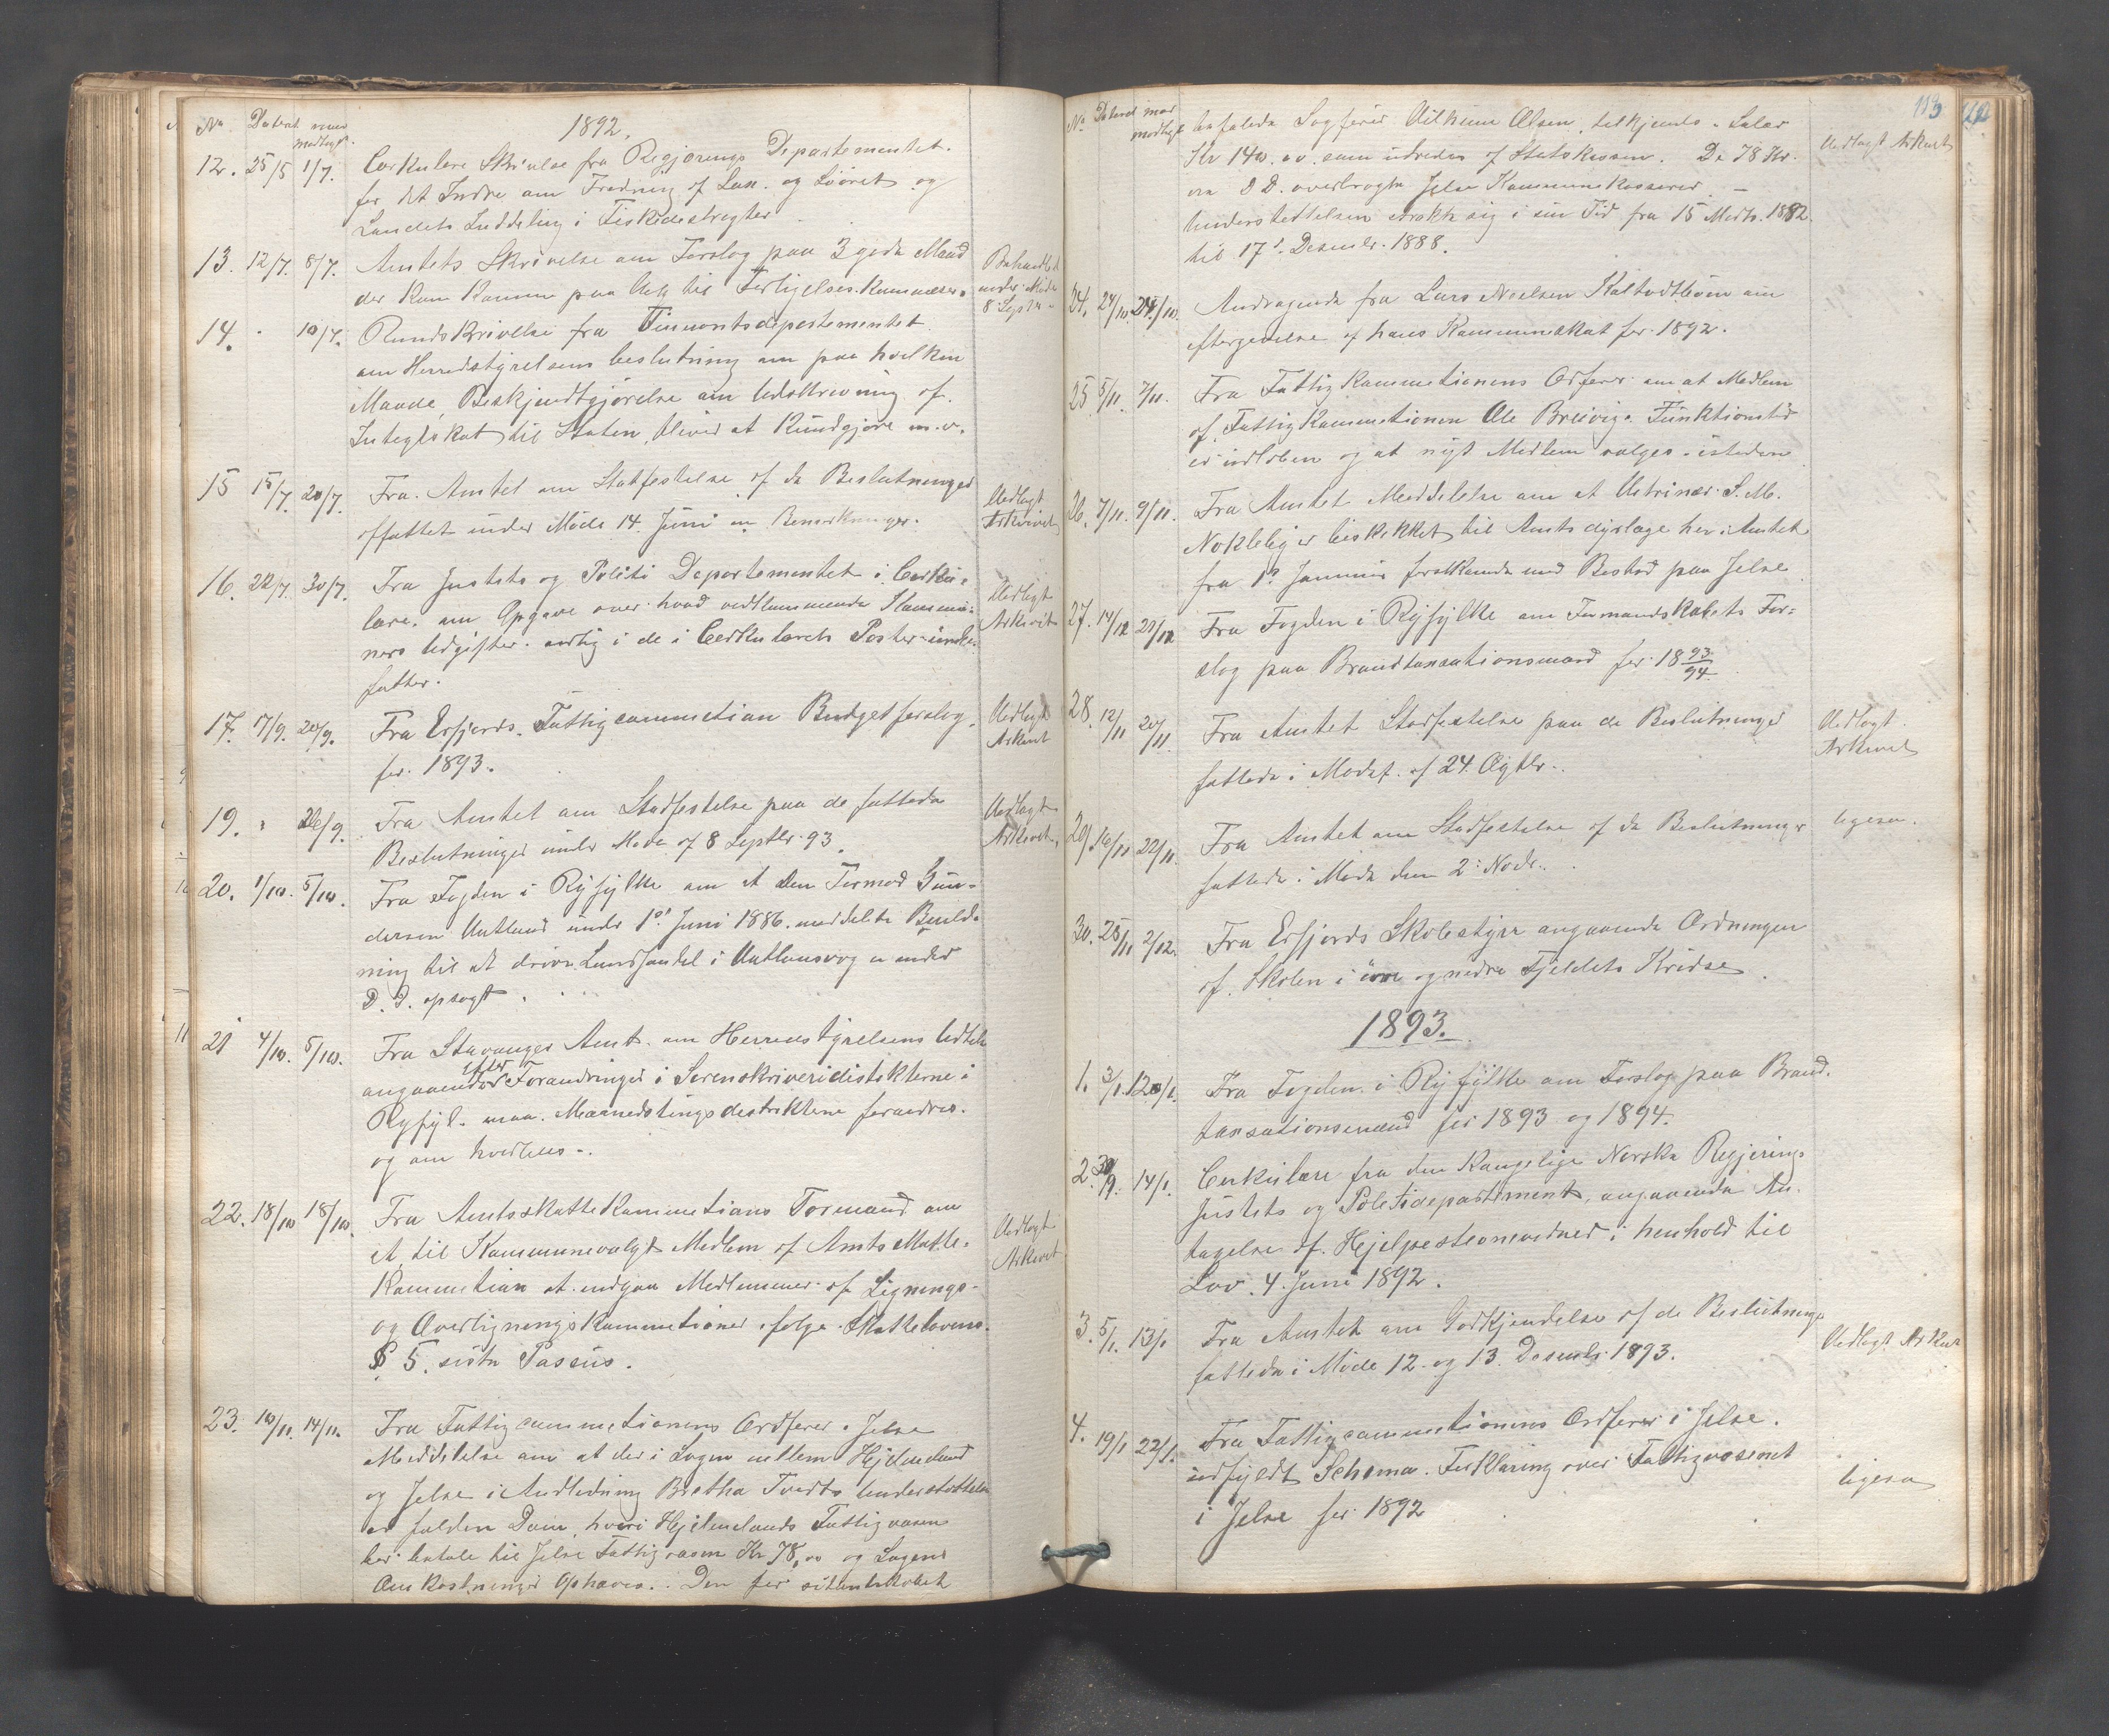 No Dateret mod 1892.
modtagt.
12. 25/5 1/7. Cerkulære Skrivelse fra Regjerings Departementet.
for det Indre om Fredning af Lax. og Søøret og
Landets Inddeling i Fiskedestrigter.
13. 12/7. 8/7. Amtets Skrivelse om Forslag paa 3 gode Mænd Behandlet
der kan komme paa Valg til Forligelses-Kommesær. under Møde
8 Septr.
14. " 10/7. Rundskrivelse fra Finnantsdepartementet
om Herredstyrelsens beslutning om paa hvilken
Maade, Beskjendtgjørelse om Udskrivning af.
Integtskat til Staten, bliver at Kundgjøre m.v.
15 15/7. 20/7. Fra Amtet om Stadfestelse af de Beslutninger Vedlagt
affattet under Møde 14. Juni en Bemerkninger. Arkivet
16. 22/7. 30/7. Fra Justits og Politi Departementet i Cerku= Vedlagt
lære. om Opgave over hvad vedkommende Kommu= Arkivet
ners Udgifter. aarlig i de i Cerkulærets Poster
fatter.
17. 17/9. 20/9. Fra Erfjords Fattigcommetion Budgetforslag. Vedlagt
for 1893. Arkivet
19. " 26/9. Fra Amtet om Stadfestelse paa de fattede Vedlagt
Beslutninger under Møde af 8 Septbr. 93. Arkivet.
20. 1/10. 5/10. Fra Fogden i Ryfylke om at den Tormod Gun-
dersen Vatland under 1ste Juni 1886. meddelte Bevild-
ning til at drive Landhandel i Vatlansvog er under
D. D. opsagt.
21 4/10. 5/10. Fra Stavanger Amt. om Herredstyrelsens Udtal
angaaende efter Forandringer i Sorenskriveridistrikterne i
Ryfyl. maa. Maanedstingsdestrikterne forandres.
og om hvorledes.
22. 18/10 18/10. Fra AmtsskatteKommetions Formand om
at til Kommunevalgt Medlem af AmtsSkatte- Vedlagt
Kommetion at undgaa Medlemmer af Lignings- Arkivet
og OverligningsKommetioner. følge Skattelovens.
§ 5. siste Passus.
23. 10/11. 14/11. Fra Fattigcommetionens Ordfører i Jelse
Meddelelse om at der i Sagen mellem Hjelmeland
og Jelse i Andledning Bertha Tvedts Understøttelse
er falden Dom, hvori Hjelmelands Fattigvæsen
bør betale til Jelse Fattigvæsen Kr 78,00 og Sagens
Omkostninger Ophæves. Den for
113
No Dateret mod
modtagt befalede Sagfører Vilhelm Olsen, tilkjendes Salær Vedlagt Arkivet
Kr 140.00. som udredes af Statskassen. De 78 Kr.
D D. overbragte Jelse Kommunekasserer. -
Understøttelsen strakte sig i sin Tid fra 15 Marts. 1882.
til 17de Desembr. 1888.
24. 24/10. 24/10. Andragende fra Lars Neelsen Kaltvedtløen om
eftergivelse af hans Kommuneskat for 1892.
25 5/11. 7/11. Fra FattigKommetionens Orfører om at Medlem
af FattigKommetionen Ole Breivigs Funktionstid
er udløben og at nyt Medlem valges isteden
26. 7/11. 9/11. Fra Amtet Meddelelse om at Vetrinær S. M.
Nokleby er beskikket til Amts dyrlæge her i Amtet
fra 1ste Januar med Bested paa Jelse
27. 14/12 20/12 Fra Fogden i Ryfylke om Formandskabets For=
slag paa Brandtaxationsmænd for 18 93/94.
28. 12/11 20/11. Fra Amtet Stadfestelse paa de Beslutninger Vedlagt
fattede i Møde af 24 Ogtbr. Arkivet
29. 16/11 22/11. Fra Amtet om Stadfestelse af de Beslutninger ligesaa.
fattede i Møde den 2: Nvbr.
30. 28/11 2/12. Fra Erfjords Skolestyre angaaende Ordningen
af Skolen i øvre og nedre Fjeldets Kridse.
1893.
1. 3/1. 120/1. Fra Fogden i Ryfylke om Forslag paa Brand.
taxsationsmænd for 1893 og 1894.
2. 30/9. 14/1. Cerkulære fra den Kongelige Norske Regjerings
Justits og Politidepartement, angaaende An.
tagelse af Hjelpestevnevidner i henhold til
Lov 4. Juni 1892.
3. 5/1. 13/1 Fra Amtet om Godkjendelse af de Beslutninger Vedlagt Arkiv
fattede i Møde 12. og 13. Desemb. 1893.
4. 19/1 22/1. Fra Fattigcommetionens Ordfører i Jelse.
udfyldt Schema. Forklaring over Fattigvæsenet ligesaa
i Jelse for 1892